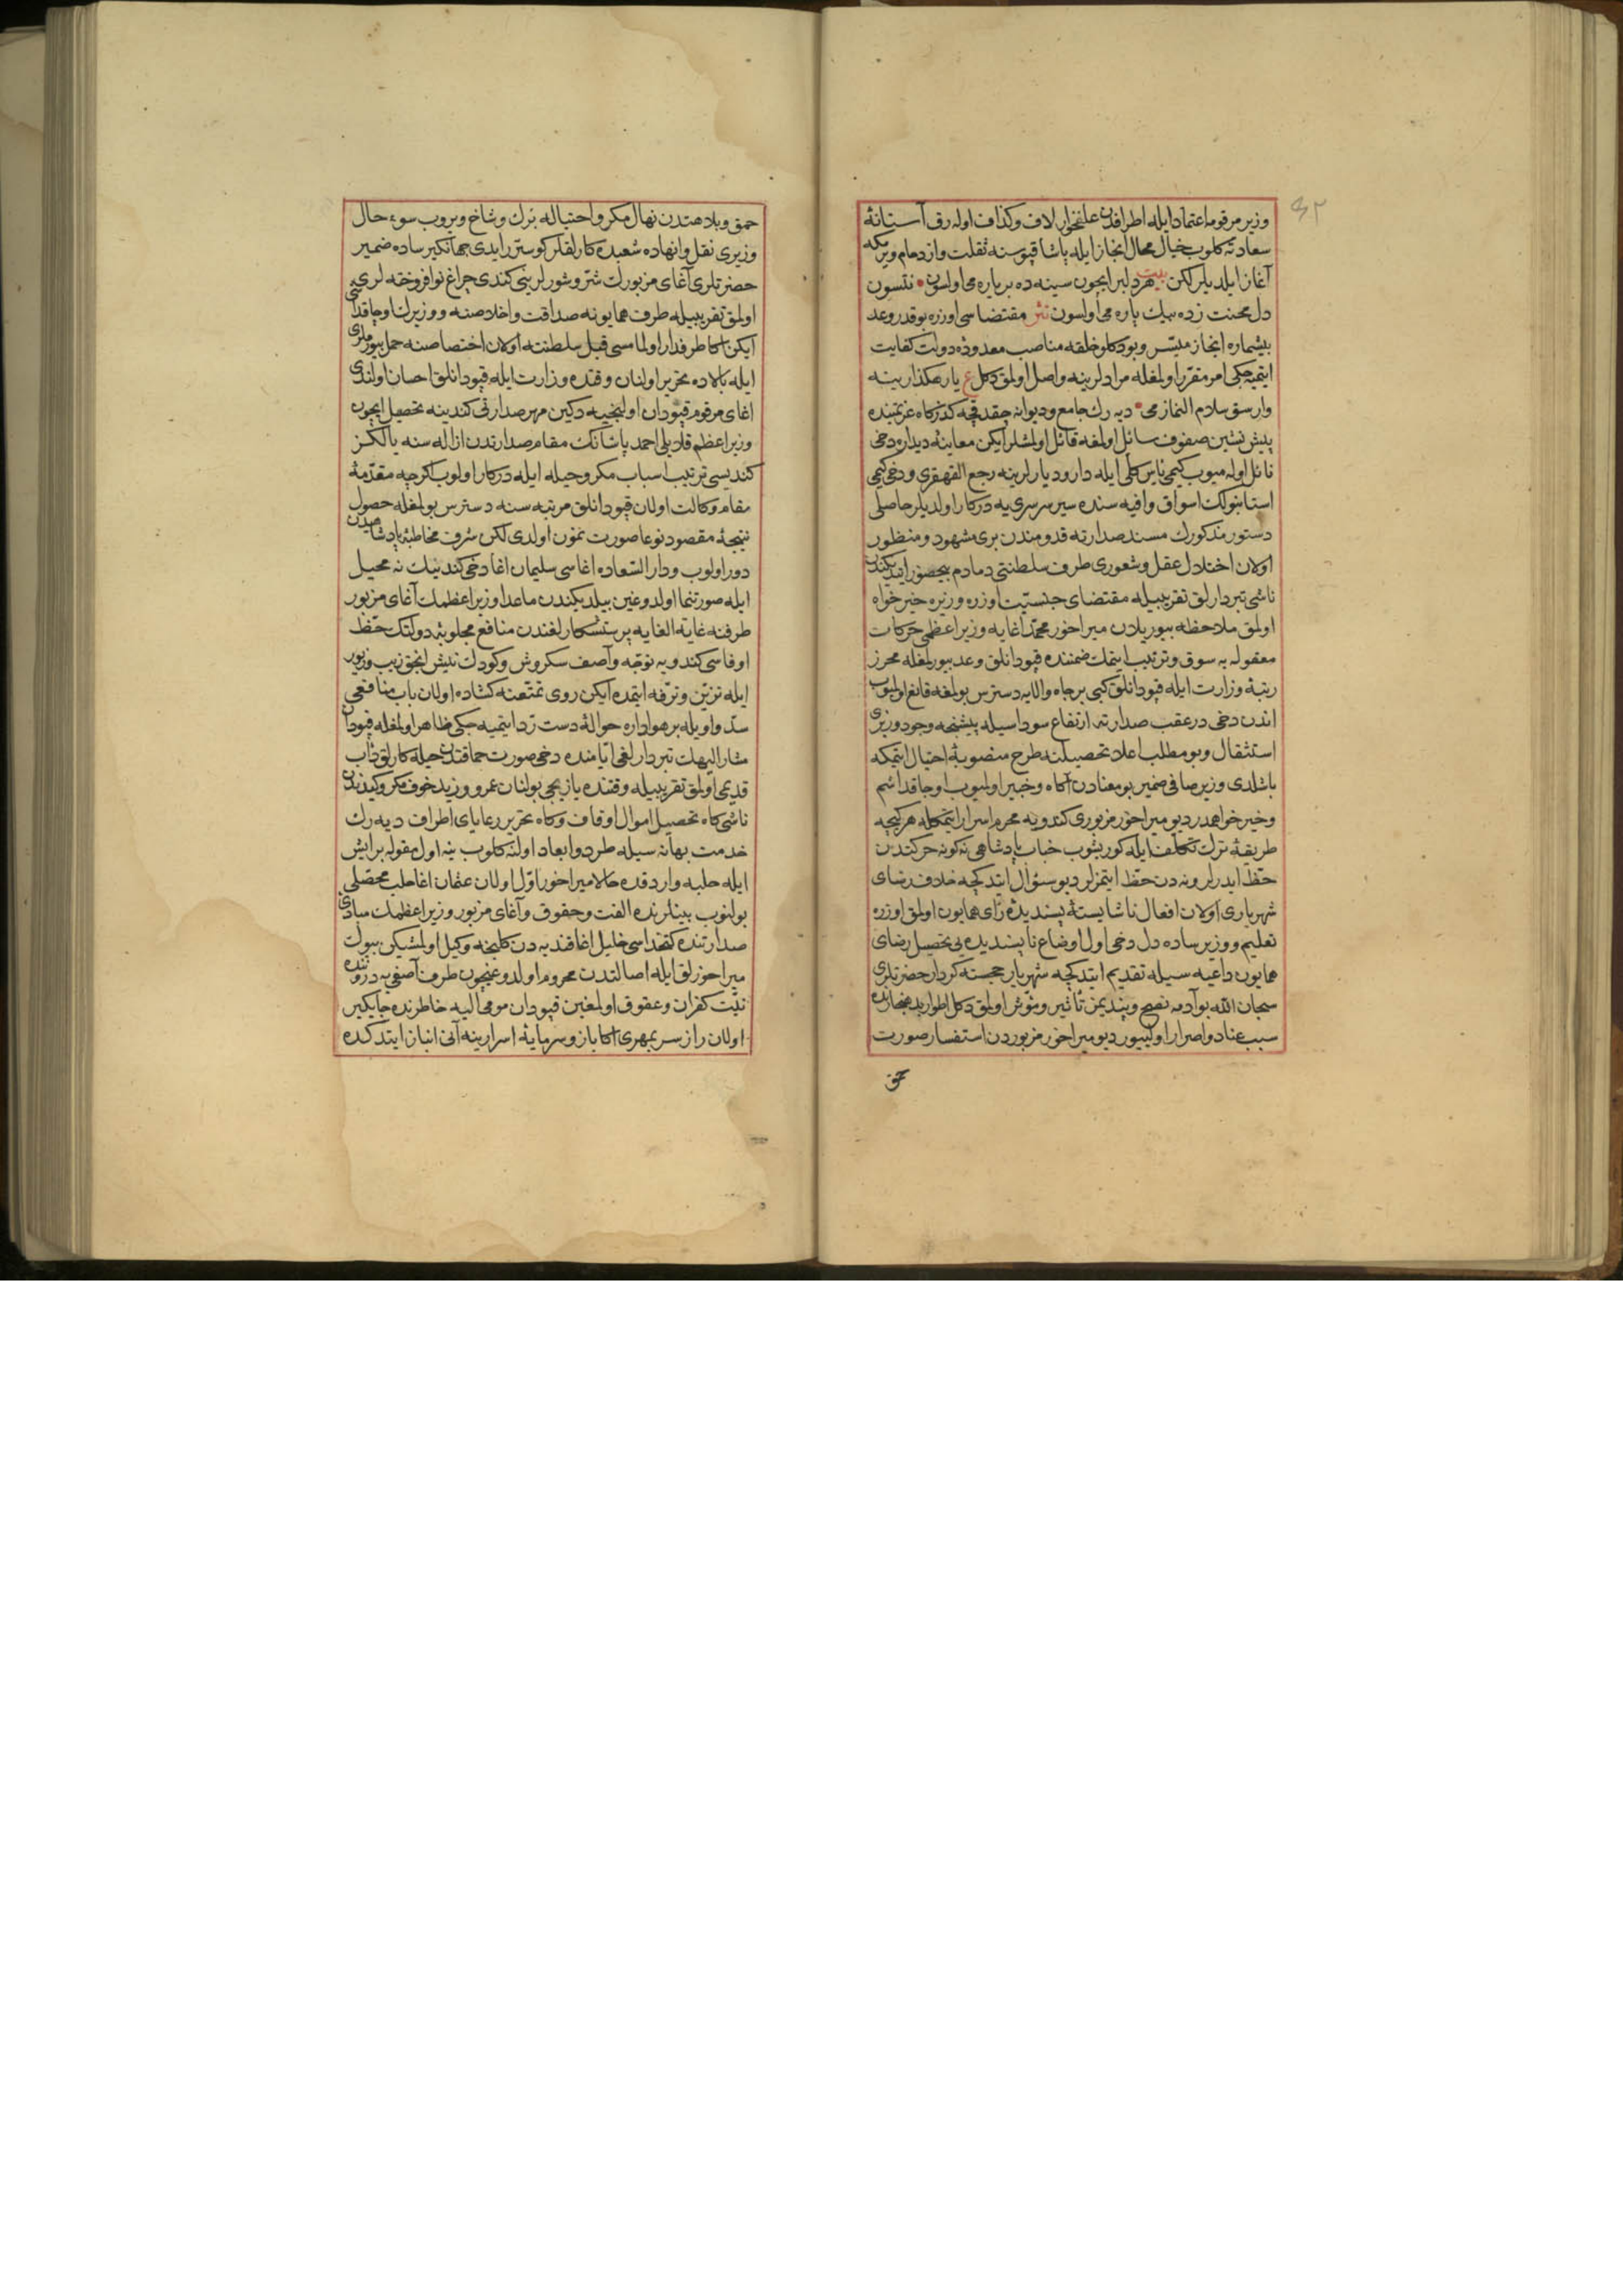 ٤٢
وزیر مرقومه اعتماد ایله اطرافدن علفخوار لاف وکذاف اوله رق آستانهٔ
سعادته کلوب خیال محال انجاز ایله پاشا قپوسنه ثقلت وازدحام ویرمکه
آغاز ایلدیلر لکن بیت هر دلبر ایچون سینه ده بر یاره می اولسون • نتسون
دل محنت زده بیك پاره می اولسون نثر مقتضاسی اوزره بو قدر وعد
بیشماره انجاز میسر وبو دکلو خلقه مناصب معدودهٔ دولت کفایت
ایتمیه جکی امر مقرر اولمغله مرادلرینه واصل اولمق دکل ع یار رهکذارینه
وارسق سلام النمازمی • دیه رك جامع ودیوانه چقدقچه کذرکاه عزیمتنده
پیش نشین صفوف سائل اولمغه قائل اولمشلر ایکن معاینهٔ دیداره دخی
نائل اوله میوب کیمی یأس کلی ایله دار ودیارلرینه رجع القهقری ودخی کیمی
استانبولك اسواق وافیه سنده سیر سرسری یه درکار اولدیلر حاصلی
دستور مذکورك مسند صدارته قدومندن بری مشهود ومنظور
اولان اختلال عقل وشعوری طرف سلطنتی دمادم بیحضور ایتدیکندن
ناشی تبردارلق تقریبیله مقتضای جنسیت اوزره وزیره خیرخواه
اولمق ملاحظه بیوریلان میراخور محمد اغایه وزیر اعظمی حرکات
معقوله یه سوق وترتیب ایتمك ضمننده قپودانلق وعد بیورلمغله محرز
رتبهٔ وزارت ایله قپودانلق کبی بر جاه والایه دسترس بولمغه قانع اولمیوب
اندن دخی در عقب صدارته ارتفاع سوداسیله پیشنجه وجود وزیری
استثقال وبو مطلب اعلا تحصیلنه طرح منصوبهٔ احتیال ایتمکه
باشلدی وزیر صافی ضمیر بو معنادن آکاه وخبیر اولمیوب اوجاقداشم
وخیرخواهمدر دیو میراخور مزبوری کندویه محرم اسرار ایتمکله هر کیجه
طریقهٔ ترك تکلف ایله کوریشوب جناب پادشاهی نه کونه حرکتدن
حظ ایدرلر ونه دن حظ ایتمزلر دیو سؤال ایتدکچه خلاف رضای
شهریاری اولان افعال ناشایستهٔ پسندیدهٔ رأی همایون اولمق اوزره
تعلیم ووزیر ساده دل دخی اول اوضاع ناپسندیده یی تحصیل رضای
همایون داعیه سیله تقدیم ایتدکچه شهریار خجسته کردار حضرتلری
سبحان الله بو آدمه نصح وپندیمز تأثیر ومؤثر اولمق دکل اطوار بدهنجارنده
سبب عناد واصرار اولییور دیو میراخور مزبوردن استفسار صورت
حمق
حمق وبلاهتدن نهال مکر واحتیاله برك وشاخ ویروب سوء حال
وزیری نقل وانهاده شعبده کارلقلر کوسترر ایدی جهانکیر ساده ضمیر
حضرتلری آغای مزبورك شر وشورلرینی کندی چراغ نوافروخته لری
اولمق تقریبیله طرف همایونه صداقت واخلاصنه ووزیرك اوجاقداشی
ایکن اکا طرفدار اولمامسی قبل سلطنته اولان اختصاصنه حمل بیورملری
ایله بالاده تحریر اولنان وقتده وزارت ایله قپودانلق احسان اولندی
اغای مرقوم قپودان اولنجیه دکین مهر صدارتی کندینه تحصیل ایچون
وزیر اعظم قلایلی احمد پاشانك مقام صدارتدن ازاله سنه یالکز
کندیسی ترتیب اسباب مکر وحیله ایله درکار اولوب اکرچه مقدمهٔ
مقام وکالت اولان قپودانلق مرتبه سنه دسترس بولمغله حصول
نتیجهٔ مقصود نوعا صورت نمون اولدی لکن شرف مخاطبهٔ پادشاهیدن
دور اولوب ودار السعاده اغاسی سلیمان اغا دخی کندینك نه محیل
ایله صورتنما اولدوغین بیلدیکندن ماعدا وزیر اعظمك آغای مزبور
طرفنه غایة الغایه پرستشکارلغندن منافع مجلوبهٔ دولتك حظ
اوفاسی کندویه توجه وآصف سکروش وکودك نشین انجق زیب وزیور
ایله تزین وترفه ایتمده ایکن روی تمتعنه کشاده اولان باب منافعی
سد واویله بر هواداره حوالهٔ دست رد ایتمیه جکی ظاهر اولمغله قپودان
مشار الیهك تبردارلغی ایامنده دخی صورت حماقتده حیله کارلق دأب
قدیمی اولمق تقریبیله وقتنده یازیجی بولنان عمرو وزید خوف مکر وکیدندن
ناشی کاه تحصیل اموال اوقاف وکاه تحریر رعایای اطراف دیه رك
خدمت بهانه سیله طرد وابعاد اولنه کلوب ینه اول مقوله بر ایش
ایله حلبه واردقده حالا میراخور اول اولان عثمان اغا حلب محصلی
بولنوب بینلرنده الفت وحقوق وآغای مزبور وزیر اعظمك مبادی
صدارتنده کتخداسی خلیل اغا قندیه دن کلنجه وکیل اولمشیکن بیوك
میراخورلق ایله اصالتدن محروم اولدوغیچون طرف آصفی یه درونده
نیت کفران وعقوق اولمغین قپودان مومی الیه خاطرنده جایکیر
اولان راز سر بمهری اکا باز وسرمایهٔ اسرارینه آنی انباز ایتدکده